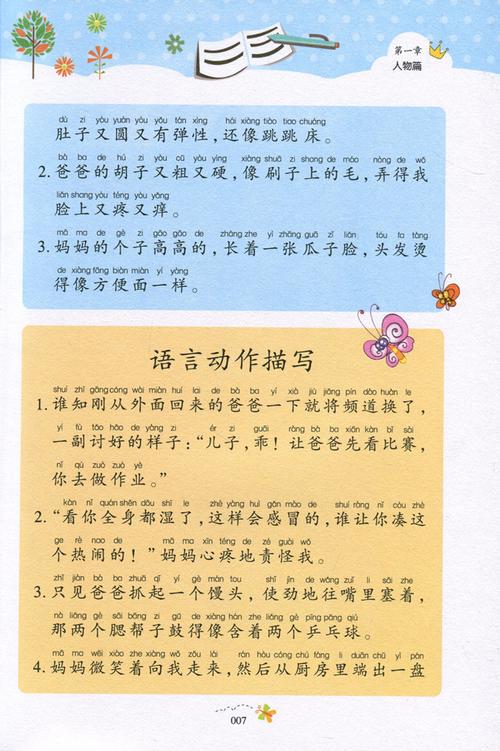 第一章
人物篇
dù zi yòu yuán yòu yǒu tán xìng hái xiàng tiào tiao chuáng
肚子又圆又有弹性，还像跳跳床。
bà ba de hú zi yòu cū yòu yìng xiàng shuā zi shang de máo nòng de wǒ
2. 爸爸的胡子又粗又硬，像刷子上的毛，弄得我
liǎn shang yòu téng yòu yǎng
脸上又疼又痒。
mā ma de gè zi gāo gāo de zhǎng zhe yì zhāng guā zǐ liǎn tóu fa tàng
3. 妈妈的个子高高的，长着一张瓜子脸，头发烫
de xiàng fāng biàn miàn yí yàng
得像方便面一样。
语言动作描写
shuí zhī gāng cóng wài miàn huí lai de bà ba yí xià jiù jiāng pín dào huàn le
1. 谁知刚从外面回来的爸爸一下就将频道换了，
yí fù tǎo hǎo de yàng zi ér zi guāi ràng bà ba xiān kàn bǐ sài
一副讨好的样子：“儿子，乖！让爸爸先看比赛，
nǐ qù zuò zuò yè
你去做作业。”
kàn nǐ quán shēn dōu shī le zhè yàng huì gǎn mào de shuí ràng nǐ còu zhè
2. “看你全身都湿了，这样会感冒的，谁让你凑这
ge rè nao de mā ma xīn téng de zé guài wǒ
个热闹的！”妈妈心疼地责怪我。
zhǐ jiàn bà ba zhuā qǐ yí gè mán tou shǐ jìn de wǎng zuǐ li sāi zhe
3. 只见爸爸抓起一个馒头，使劲地往嘴里塞着，
nà liǎng gè sāi bāng zi gǔ de xiàng hán zhe liǎng gè pīng pāng qiú
那两个腮帮子鼓得像含着两个乒乓球。
mā ma wēi xiào zhe xiàng wǒ zǒu lái rán hòu cóng chú fáng li duān chū yì pán
4. 妈妈微笑着向我走来，然后从厨房里端出一盘
007